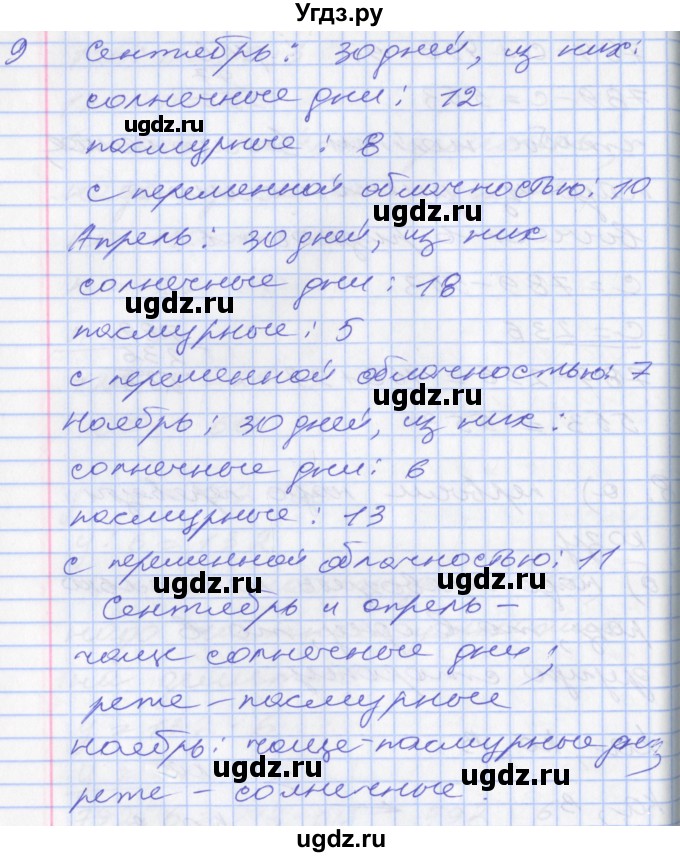 Угдз.ру
9 Сентябрь: 30 дней, из них:
солнечные дни: 12
ugdz.ru
пасмурные: 8
с переменной облачностью: 10
ugdz.ru
Апрель: 30 дней, из них
солнечные дни: 18
ugdz.ru
пасмурные: 5
с переменной облачностью: 7
ugdz.ru
Ноябрь: 30 дней, из них:
солнечные дни: 6
ugdz.ru
пасмурные: 13
с переменной облачностью: 11
ugdz.ru ugdz.ru
Сентябрь и апрель –
чаще солнечные дни;
реже – пасмурные
ноябрь: чаще – пасмурные дни;
ugdz.ru ugdz.ru
реже – солнечные.
ugdz.ru